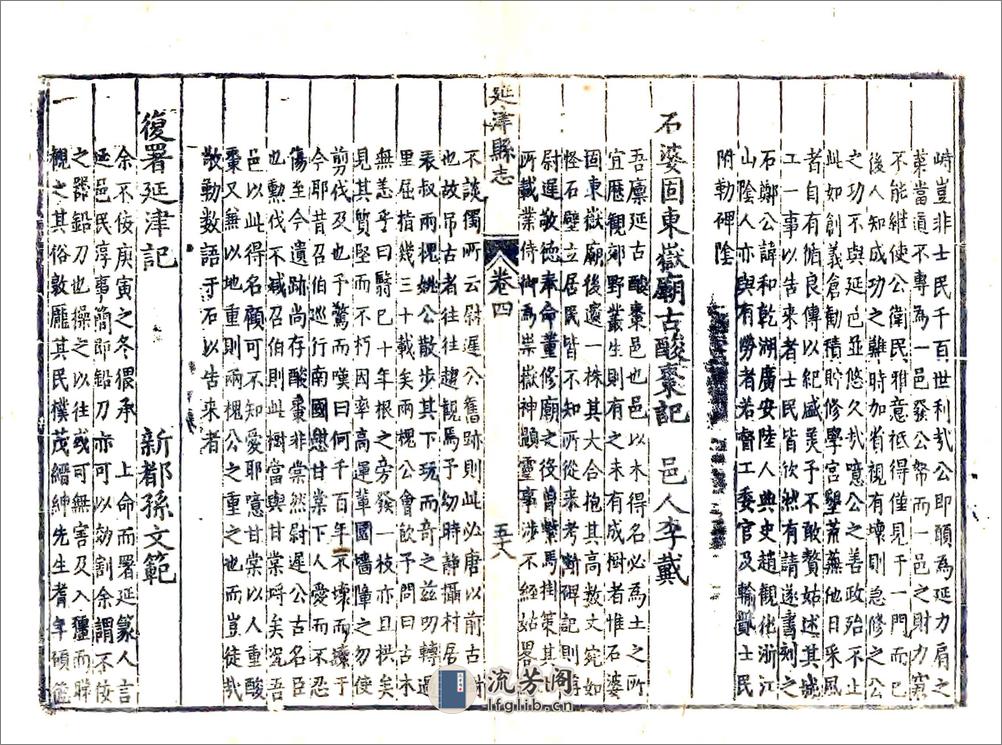 峙豈非士民千百世利哉公即願為延力肩之
業當道不專為一邑發公帑而一邑之財力第
不能継使公衛民雅意祗得僅見于一門而已
後人知成功之難時加省視有壞則急修之公
之功不與延邑並悠久哉噫公之善政殆不止
此如創義倉勸積貯修學宮墾荒蕪他日采風
者自有循良傳以紀盛美予不敢贅姑述其城
工一事以告来者士民皆欣然有請遂書刻之
石鄭公諱和乾湖廣安陸人典史趙觀化浙江
山隂人亦與有勞者若督工委官及輸貲士民
附勒碑隂
石婆固東嶽廟古酸棗記 邑人李戴
吾廪延古酸棗邑也邑以木得名必為土之所
宜歷觀郊野叢生則有之未有成樹者惟石婆
固東嶽廟後邊一株其大合抱其高数丈宛如
怪石壁立居民皆不知所從来考斷碑記則
尉遲敬徳奉命董修廟之役曽繫馬掛策其
所載業侍御為崇嶽神題靈事涉不經姑畧
不談獨所云尉遲公舊跡則此必唐以前古
也故吊古者往往趨觀焉予幼時静攝村居
表叔兩槐姚公散步其下玩而奇之兹旳轉過
里屈指幾三十載矣兩槐公會飲予問曰古木
無恙乎曰翳已十年根之旁發一枝亦且拱矣
見其質堅而不朽因率高運輩國墻障之勿使
剪伐及也予驚而嘆曰何千百年不壞而壞于
今耶昔召伯巡行南國憇甘棠下人愛而不忍
傷至今遺跡尚存酸棗非棠然尉遲公古名臣
也勲伐不减召伯則此樹當與甘棠埓矣况吾
邑以此得名顧名可不知愛耶噫甘棠以人重酸
棗又無以地重則兩槐公之重之也而豈徒哉
敬勒数語于石以告来者
復署延津記 新都孫文範
余不佞庚寅之冬猥承 上命而署延篆人言
延邑民淳事簡即鉛刀亦可以効割余謂不佞
之器鉛刀也操之以往或可無害及入疆而聨
覩之其俗敦龐其民樸茂縉紳先生耆年碩
延津縣志
卷四
五十八
流芳阁
lfglib.cn